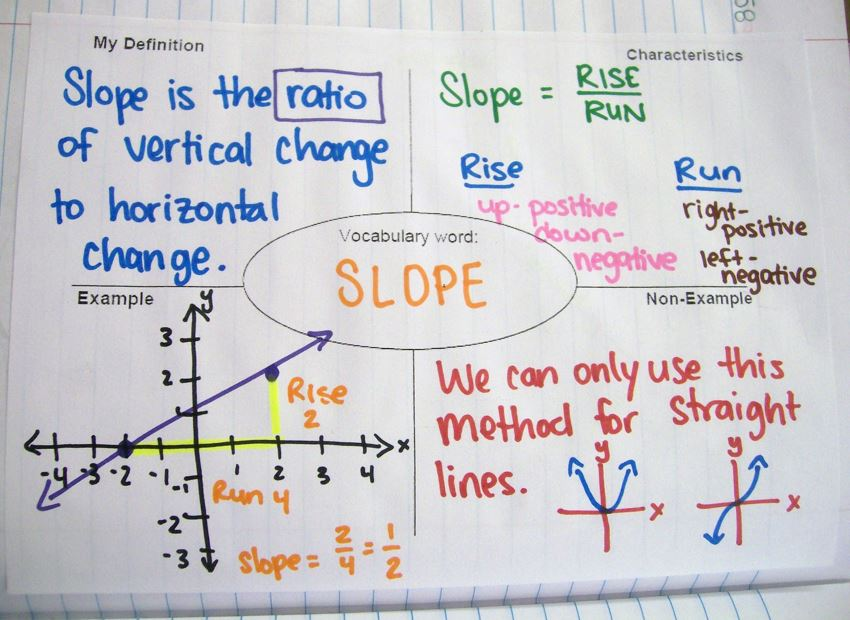 58
My Definition
Slope is the ratio
of vertical change
to horizontal
change.
Characteristics
Slope = RISE
RUN
Rise
up- positive
down-
negative
Run
right-
positive
left-
negative
Vocabulary word:
SLOPE
Example
y
3
2
x
-4 -3 -2 -1 1 2 3 4
-1
-2
-3
Rise
2
Run 4
Slope = 2/4 = 1/2
Non-Example
We can only use this
method for straight
lines.
y
x
y
x